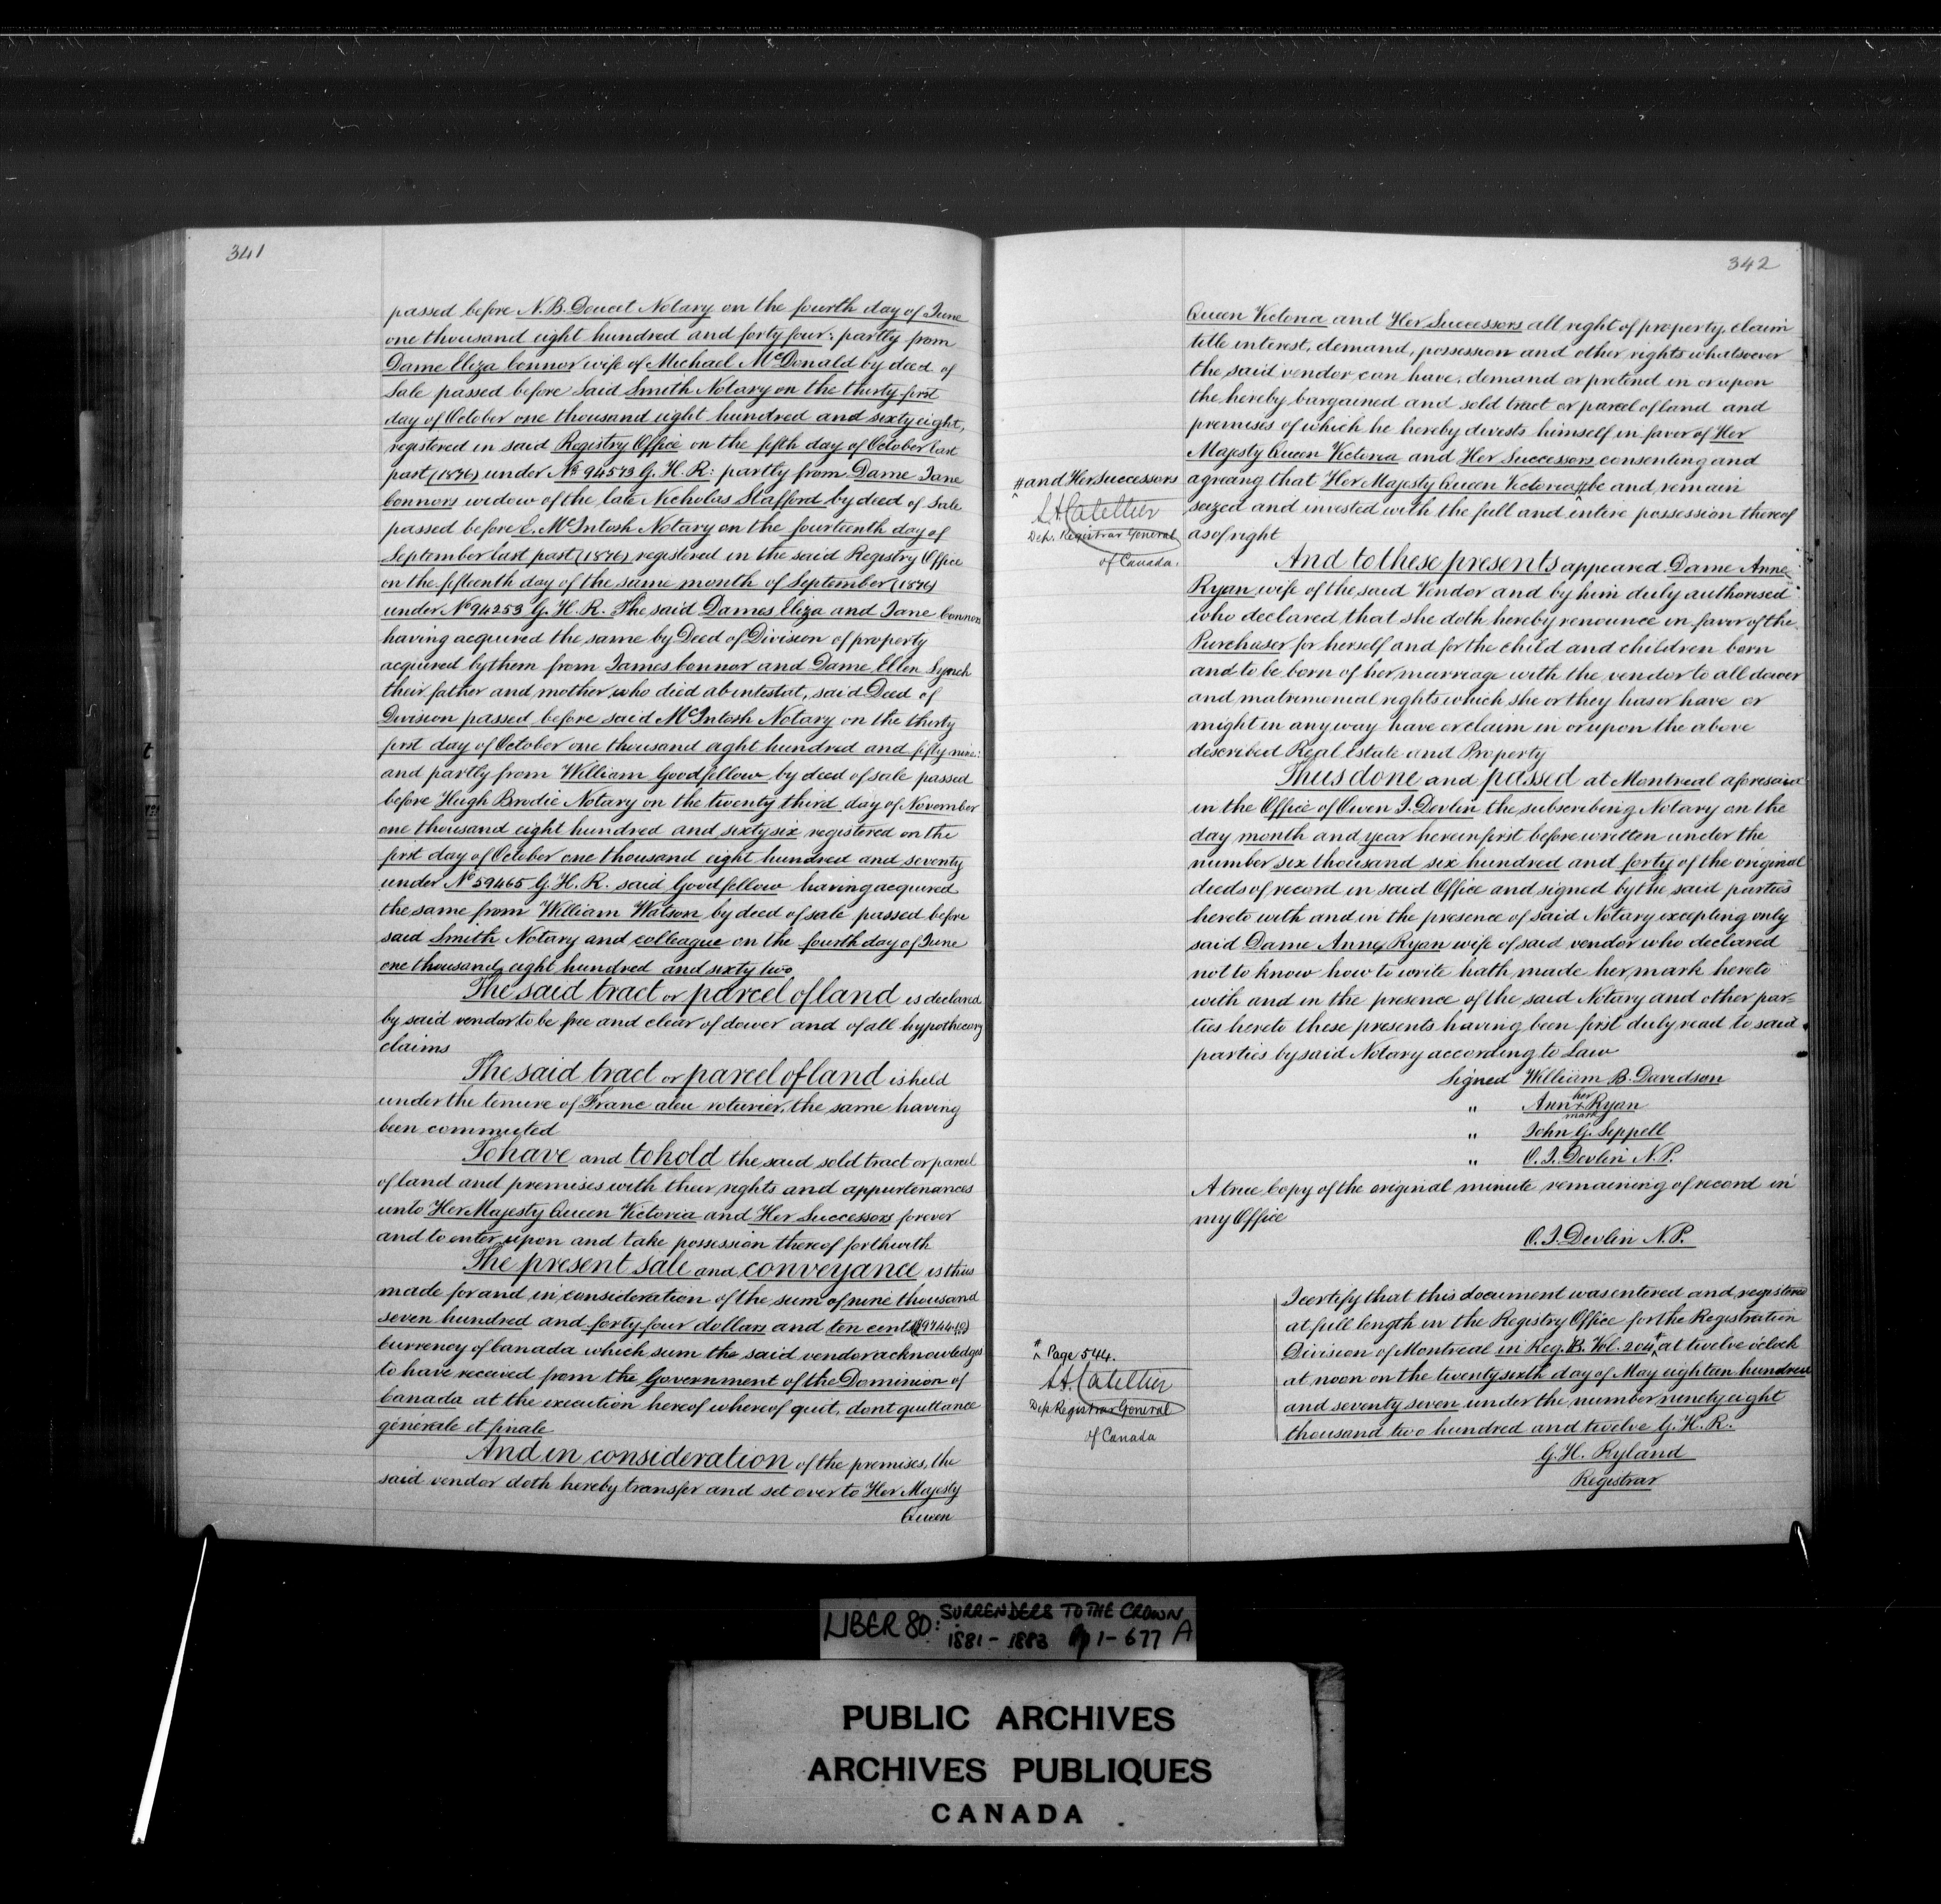 341
passed before N. B. Doucet Notary on the fourth day of June
one thousand eight hundred and forty four: partly from
Dame Eliza Connor wife of Michael McDonald by deed of
Sale passed before said Smith Notary on the thirty first
day of October one thousand eight hundred and sixty eight,
registered in said Registry Office on the fifth day of October last
past (1876) under No 94573 G. H. R: partly from Dame Jane
Connors widow of the late Nicholas Stafford by deed of Sale
passed before E. McIntosh Notary on the fourteenth day of
September last past (1876) registered in the said Registry Office
on the fifteenth day of the same month of September (1876)
under No 94253 G. H. R. The said Dames Eliza and Jane Connors
having acquired the same by Deed of Division of property
acquired by them from James Connor and Dame Ellen Lynch
their father and mother who died abintestat, said Deed of
Division passed before said McIntosh Notary on the thirty
first day of October one thousand eight hundred and fifty nine:
and partly from William Goodfellow by deed of sale passed
before Hugh Brodie Notary on the twenty third day of November
one thousand eight hundred and sixty six registered on the
first day of October one thousand eight hundred and seventy
under No 59465 G. H. R. said Goodfellow having acquired
the same from William Watson by deed of sale passed before
said Smith Notary and colleague on the fourth day of June
one thousand eight hundred and sixty two.
The said tract or parcel of land is declared
by said vendor to be free and clear of dower and of all hypothecary
claims
The said tract or parcel of land is held
under the tenure of Franc aleu roturier, the same having
been commuted
To have and to hold the said sold tract or parcel
of land and premises with their rights and appurtenances
unto Her Majesty Queen Victoria and Her Successors forever
and to enter upon and take possession thereof forthwith
The present sale and conveyance is thus
made for and in consideration of the sum of nine thousand
seven hundred and forty four dollars and ten cents ($9744.10)
currency of Canada which sum the said vendor acknowledges
to have received from the Government of the Dominion of
Canada at the execution hereof whereof quit, dont quittance
générale et finale
And in consideration of the premises, the
said vendor doth hereby transfer and set over to Her Majesty
Queen
342
Queen Victoria and Her Successors all right of property, claim
title interest, demand, possession and other rights whatsoever
the said vendor can have, demand or pretend in or upon
the hereby bargained and sold tract or parcel of land and
premises of which he hereby divests himself in favor of Her
Majesty Queen Victoria and Her Successors consenting and
agreeing that Her Majesty Queen Victoria # be and remain
# and Her Successors
L. A. Catellier
Dep. Registrar General
of Canada.
seized and invested with the full and entire possession thereof
as of right
And to these presents appeared Dame Anne
Ryan wife of the said Vendor and by him duly authorised
who declared that she doth hereby renounce in favor of the
Purchaser for herself and for the child and children born
and to be born of her marriage with the vendor to all dower
and matrimonial rights which she or they has or have or
might in any way have or claim in or upon the above
described Real Estate and Property
Thus done and passed at Montreal aforesaid
in the Office of Owen J. Devlin the subscribing Notary on the
day month and year herein first before written under the
number six thousand six hundred and forty of the original
deeds of record in said Office and signed by the said parties
hereto with and in the presence of said Notary excepting only
said Dame Anne Ryan wife of said vendor who declared
not to know how to write hath made her mark hereto
with and in the presence of the said Notary and other par-
ties hereto these presents having been first duly read to said
parties by said Notary according to Law
Signed William B. Davidson
" Ann her x mark Ryan
" John G. Seppell
" O. J. Devlin N. P.
A true Copy of the original minute remaining of record in
my Office
O. J. Devlin N. P.
I certify that this document was entered and registered
at full length in the Registry Office for the Registration
Division of Montreal in Reg. B. Vol. 204 # at twelve o'clock
# Page 544.
L. A. Catellier
Dep. Registrar General
of Canada
at noon on the twenty sixth day of May eighteen hundred
and seventy seven under the number ninety eight
thousand two hundred and twelve G. H. R.
G. H. Ryland
Registrar
LIBER 80: SURRENDERS TO THE CROWN
1881 - 1883 pp 1 - 677 A
PUBLIC ARCHIVES
ARCHIVES PUBLIQUES
CANADA